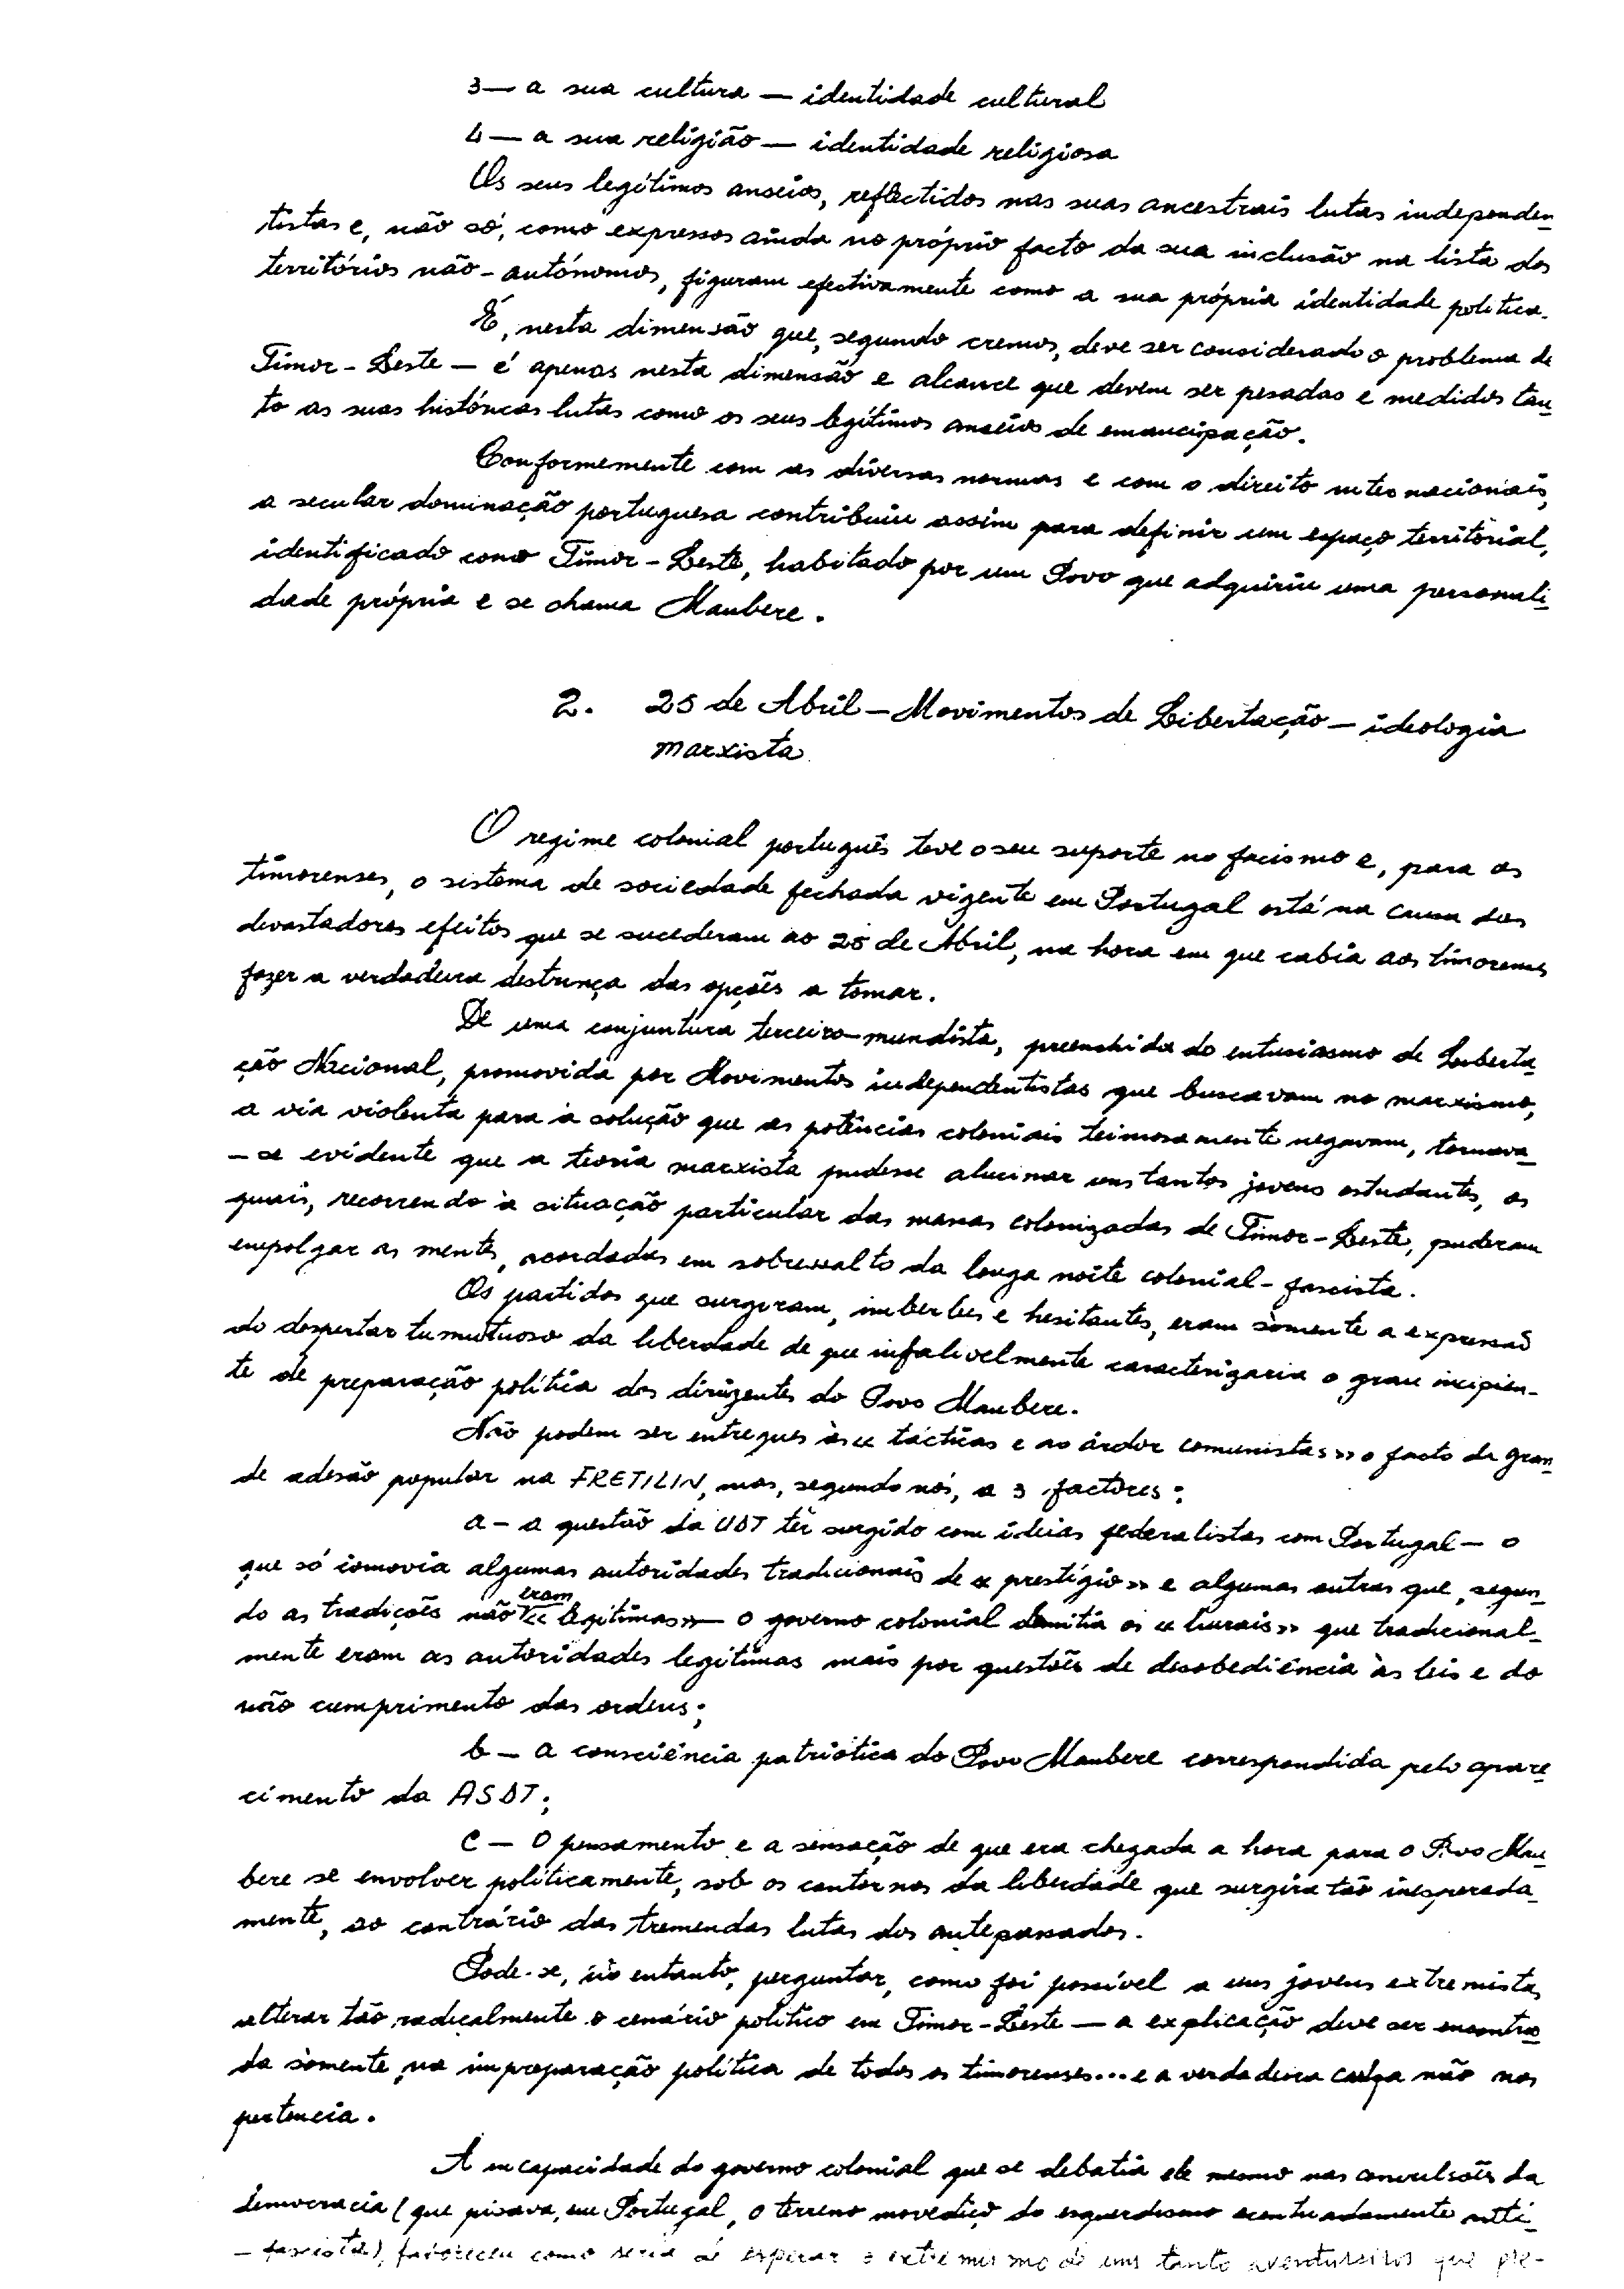 3— a sua cultura — identidade cultural
4— a sua religião — identidade religiosa
Os seus legítimos anseios, reflectidos nas suas ancestrais lutas independen-
tistas e, não só, como expressos ainda no próprio facto da sua inclusão na lista dos
territórios não-autónomos, figuram efectivamente como a sua própria identidade política.
É, nesta dimensão que, segundo cremos, deve ser considerado o problema de
Timor-Leste — é apenas nesta dimensão e alcance que devem ser pesadas e medidos tan-
to as suas históricas lutas como os seus legítimos anseios de emancipação.
Conformemente com as diversas normas e com o direito internacionais,
a secular dominação portuguesa contribuiu assim para definir um espaço territorial,
identificado como Timor-Leste, habitado por um Povo que adquiriu uma personali-
dade própria e se chama Maubere.
2. 25 de Abril — Movimentos de Libertação — ideologia
marxista
O regime colonial português teve o seu suporte no facismo e, para os
timorenses, o sistema de sociedade fechada vigente em Portugal está na causa dos
devastadores efeitos que se sucederam ao 25 de Abril, na hora em que cabia aos timorenses
fazer a verdadeira destrinça das opções a tomar.
De uma conjuntura terceiro-mundista, preenchida do entusiasmo de Liberta-
ção Nacional, promovida por Movimentos independentistas que buscavam no marxismo,
a via violenta para a solução que as potências coloniais teimosamente negavam, tornava-
-se evidente que a teoria marxista pudesse alucinar uns tantos jovens estudantes, os
quais, recorrendo à situação particular das massas colonizadas de Timor-Leste, puderam
empolgar as mentes, acordadas em sobressalto da longa noite colonial-fascista.
Os partidos que surgiram, imberbes e hesitantes, eram sòmente a expressão
do despertar tumultuoso da liberdade de que infalivelmente caracterizaria o grau incipien-
te de preparação política dos dirigentes do Povo Maubere.
Não podem ser entregues às «tácticas e ao árdor comunistas» o facto da gran-
de adesão popular na FRETILIN, mas, segundo nós, a 3 factores:
a - a questão da UDT ter surgido com ideias federalistas com Portugal — o
que só comovia algumas autoridades tradicionais de «prestígio» e algumas outras que, segun-
do as tradições não eram «legítimas» — o governo colonial demitia os «liurais» que tradicional-
mente eram as autoridades legítimas mais por questões de desobediência às leis e do
não cumprimento das ordens;
b — a consciência patriótica do Povo Maubere correspondida pelo apare-
cimento da ASDT;
c — O pensamento e a sensação de que era chegada a hora para o Povo Mau-
bere se envolver políticamente, sob os contornos da liberdade que surgira tão inesperada-
mente, ao contrário das tremendas lutas dos antepassados.
Pode-se, no entanto, perguntar, como foi possível a uns jovens extremistas
alterar tão radicalmente o cenário político em Timor-Leste — a explicação deve ser encontra-
da sòmente na impreparação política de todos os timorenses... e a verdadeira culpa não nos
pertencia.
A incapacidade do governo colonial que se debatia ele mesmo nas convulsões da
democracia (que pisava, em Portugal, o terreno movediço do esquerdismo acentuadamente anti-
-fascista), favoreceu como seria de esperar o extremismo de uns tanto aventureiros que pre-